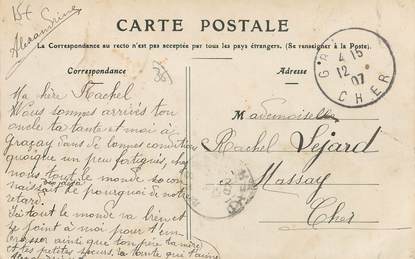 15+
Alexandrine
CARTE POSTALE
La Correspondance au recto n'est pas acceptée par tous les pays étrangers. (Se renseigner à la Poste.)
Correspondance
Adresse
Ma chère Rachel
Nous sommes arrivés ton
oncle ta tante et moi à
Graçay dans de bonnes conditions
quoique un peu fatigués, chez
nous tout le monde
naissait le pourquoi de notre
retard.
Ici tout le monde va bien et
se joint à moi pour t'em
brasser ainsi que ton père ta mère
et tes petites soeurs, ta tante qui t'aime
Mademoiselle
Rachel Lejard
Massay
Cher
4 15
12
07
CHER